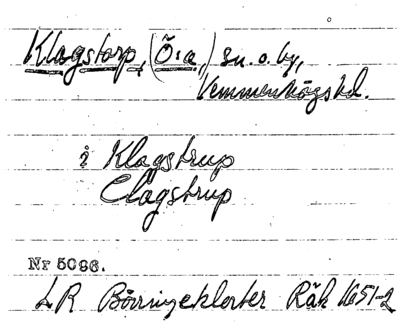 Klagstorp, (Ö:a,) sn. o. by,
Vemmenhögs hd.
i Klagstrup
Clagstrup
Nr 5096.
LR Börringekloster Räk 1651-2